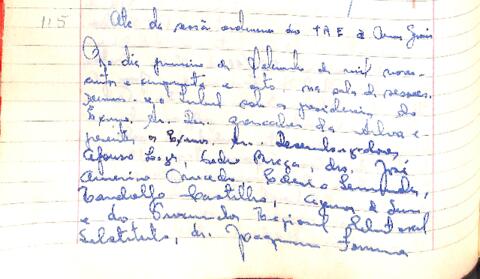 115
Ata da sessão ordinaria do TRE de Minas Gerais
No dia primeiro de Fevereiro de mil nove-
centos e cinquenta e oito, na sala de sessões,
reuniu-se o Tribunal sob a presidencia do
Exmo. Sr. Des. Gonçalves da Silva e
presentes os Exmos. Srs. Desembargadores,
Afonso Lages, Pedro Braga, drs. José
Americo Macedo, Edesio Fernandes,
Tandolfo Castilho, e
e do Procurador Regional Eleitoral
Substituto, dr. Joaquim Ferreira